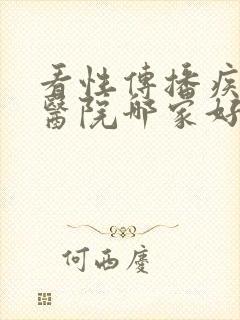 看性傳播疾
醫院哪家好
何西慶